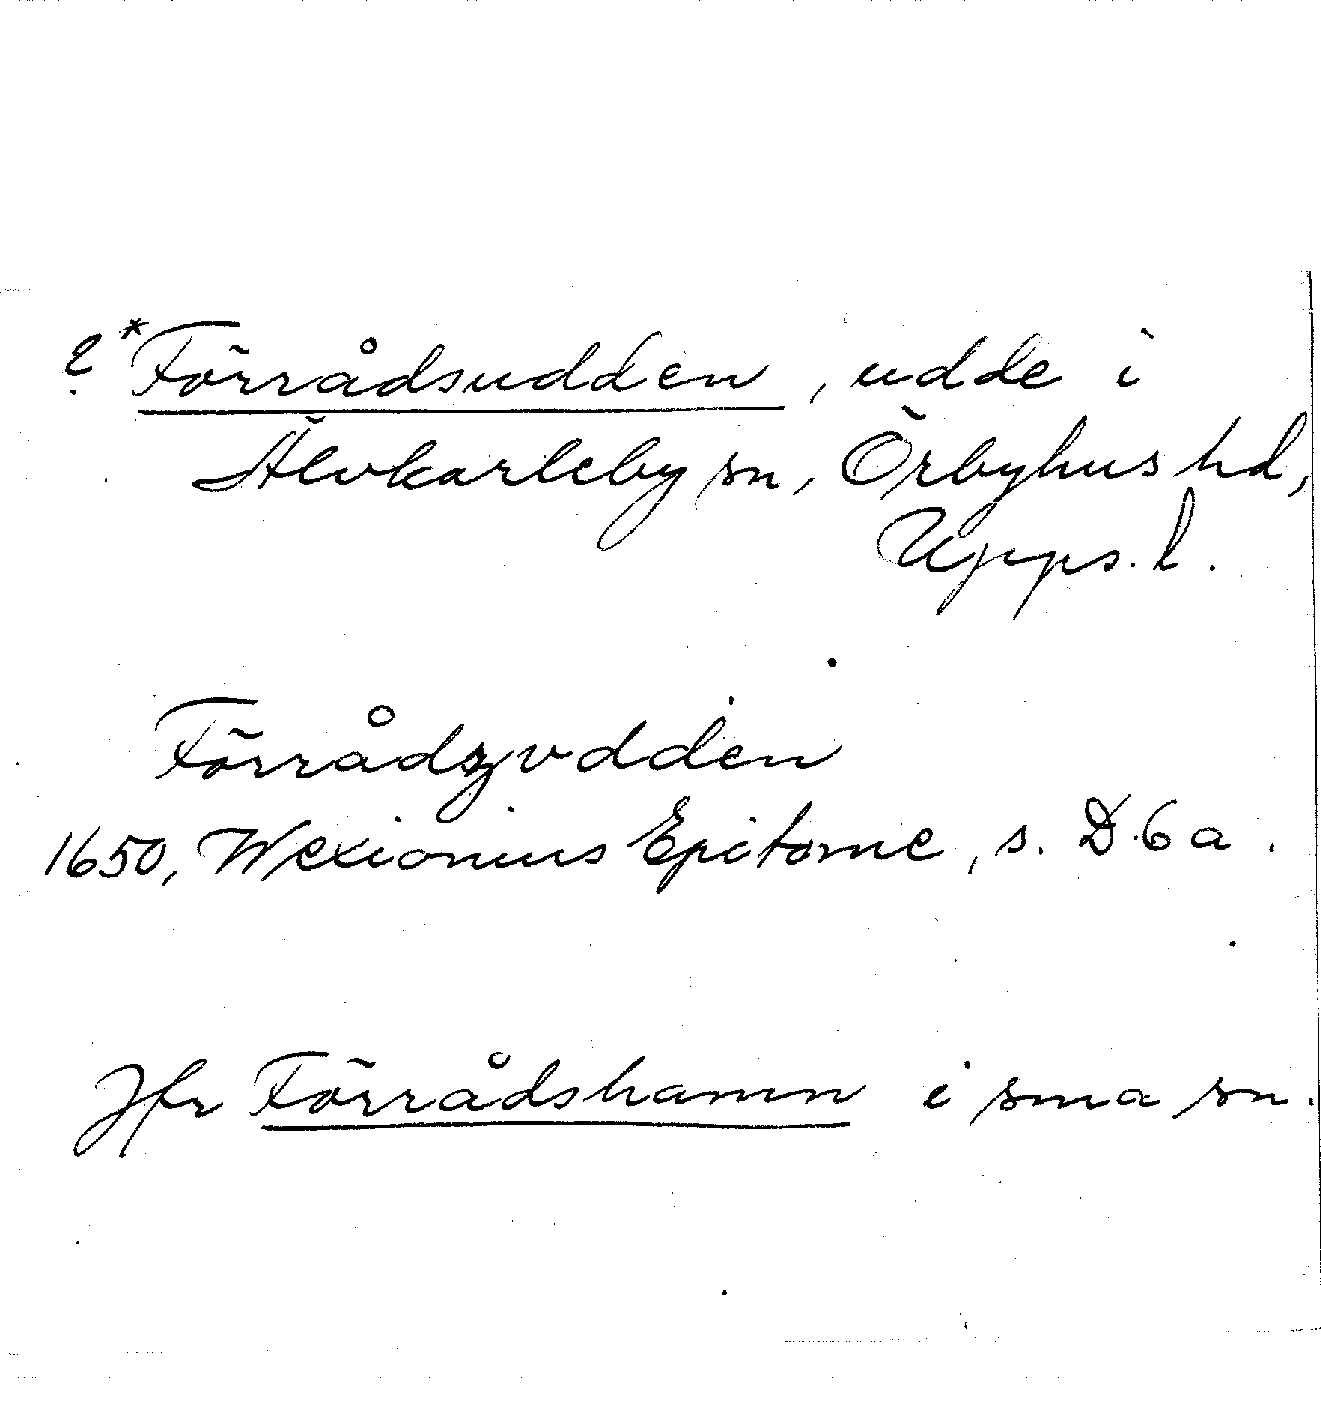 ? *Förrådsudden, udde i
Älvkarleby sn, Örbyhus hd,
Upps. l.
Förrådzvdden
1650, Wexionius Epitome, s. D 6 a.
Jfr Förrådshamn i sma sn.